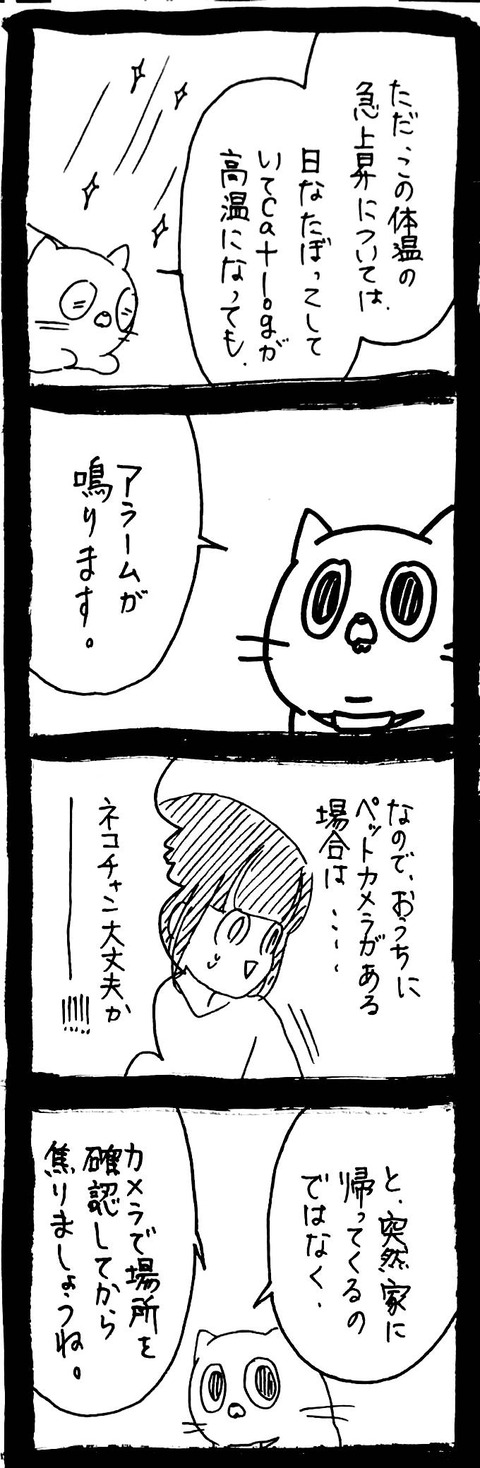 ただ、この体温の
急上昇については、
日なたぼっこして
いてCatlogが
高温になっても、
アラームが
鳴ります。
なので、おうちに
ペットカメラがある
場合は……
ネコチャン大丈夫か
━━!!!!
と、突然家に
帰ってくるの
ではなく、
カメラで場所を
確認してから
焦りましょうね。